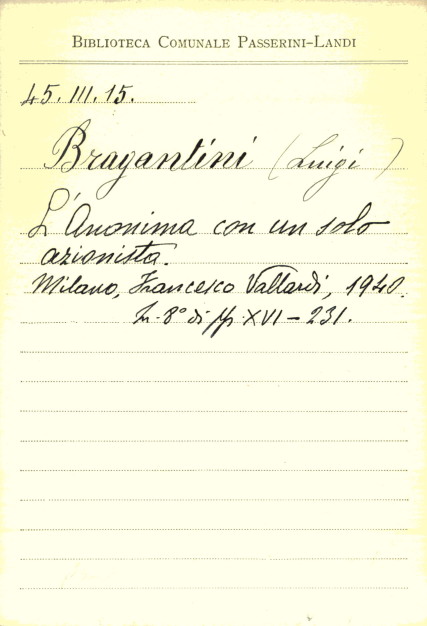 BIBLIOTECA COMUNALE PASSERINI-LANDI
45.III.15.
Bragantini (Luigi)
L'Anonima con un solo
azionista.
Milano, Francesco Vallardi, 1940.
In-8° di pp. XVI-231.